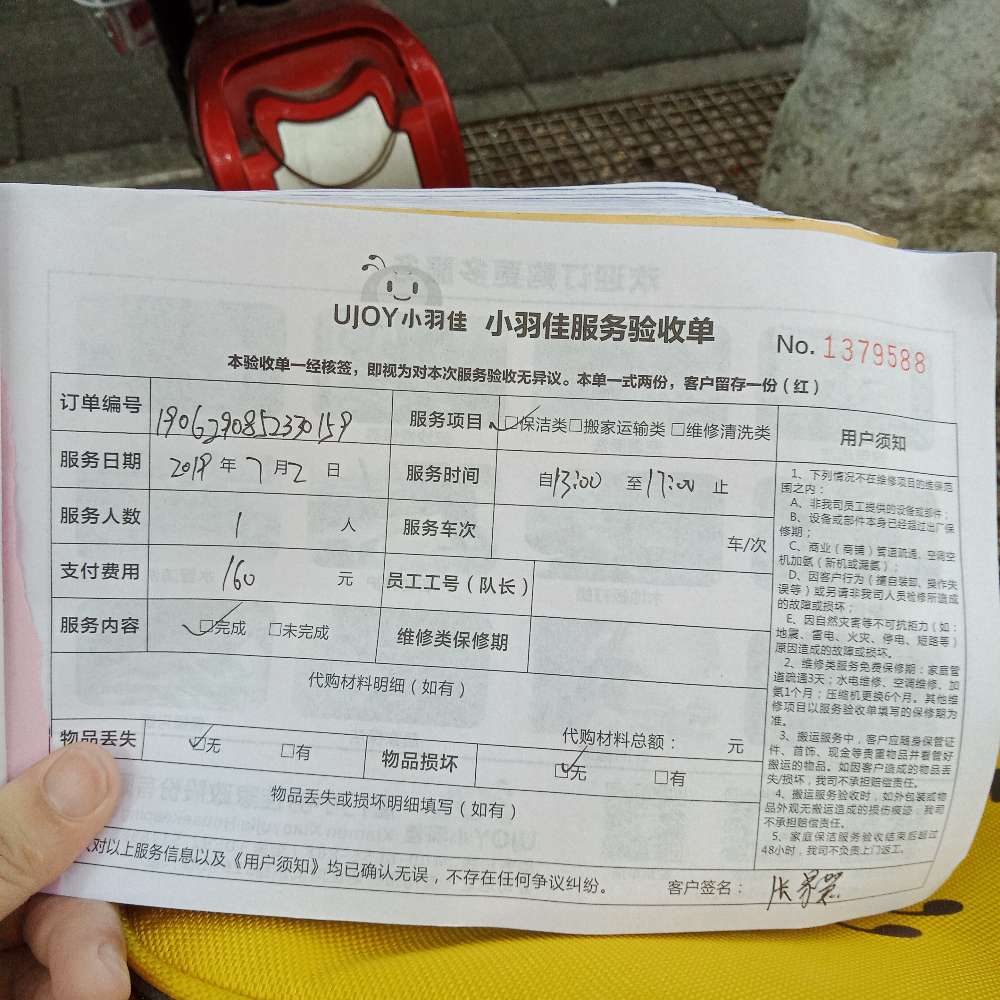 UJOY小羽佳 小羽佳服务验收单 No. 1379588
本验收单一经核签，即视为对本次服务验收无异议。本单一式两份，客户留存一份（红）
订单编号 1906290852330159 服务项目 □保洁类□搬家运输类 □维修清洗类 用户须知
服务日期 2019 年 7 月 2 日 服务时间 自13:00 至17:00 止
服务人数 1 人 服务车次 车/次
支付费用 160 元 员工工号（队长）
服务内容 □完成 □未完成 维修类保修期
代购材料明细（如有）
代购材料总额： 元
物品丢失 □无 □有 物品损坏 □无 □有
物品丢失或损坏明细填写（如有）
对以上服务信息以及《用户须知》均已确认无误，不存在任何争议纠纷。 客户签名：
1、下列情况不在维修项目的维保范
围之内：
A、非我司员工提供的设备或部件；
B、设备或部件本身已经超过出厂保
修期；
C、商业（商铺）管道疏通、空调空
机加氨（新机或漏氨）；
D、因客户行为（擅自装卸、操作失
误等）或另请非我司人员检修所造成
的故障或损坏；
E、因自然灾害等不可抗拒力（如：
地震、雷电、火灾、停电、短路等）
原因造成的故障或损坏。
2、维修类服务免费保修期：家庭管
道疏通3天；水电维修、空调维修、加
氨1个月；压缩机更换6个月。其他维
修项目以服务验收单填写的保修期为
准。
3、搬运服务中，客户应随身保管证
件、首饰、现金等贵重物品并看管好
搬运的物品。如因客户造成的物品丢
失/损坏，我司不承担赔偿责任。
4、搬运服务验收时，如外包装或物
品外观无搬运造成的损伤痕迹，我司
不承担赔偿责任。
5、家庭保洁服务验收结束后超过
48小时，我司不负责上门返工。